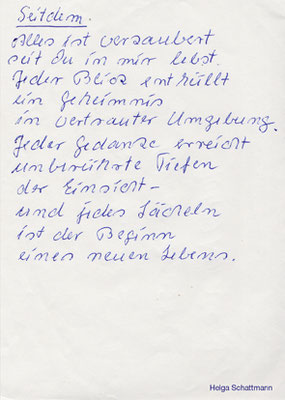 Seitdem.
Alles ist verzaubert
seit Du in mir lebst.
Jeder Blick enthüllt
ein Geheimnis
in vertrauter Umgebung.
Jeder Gedanke erreicht
unberührte Tiefen
der Einsicht –
und jedes Lächeln
ist der Beginn
eines neuen Lebens.
Helga Schattmann